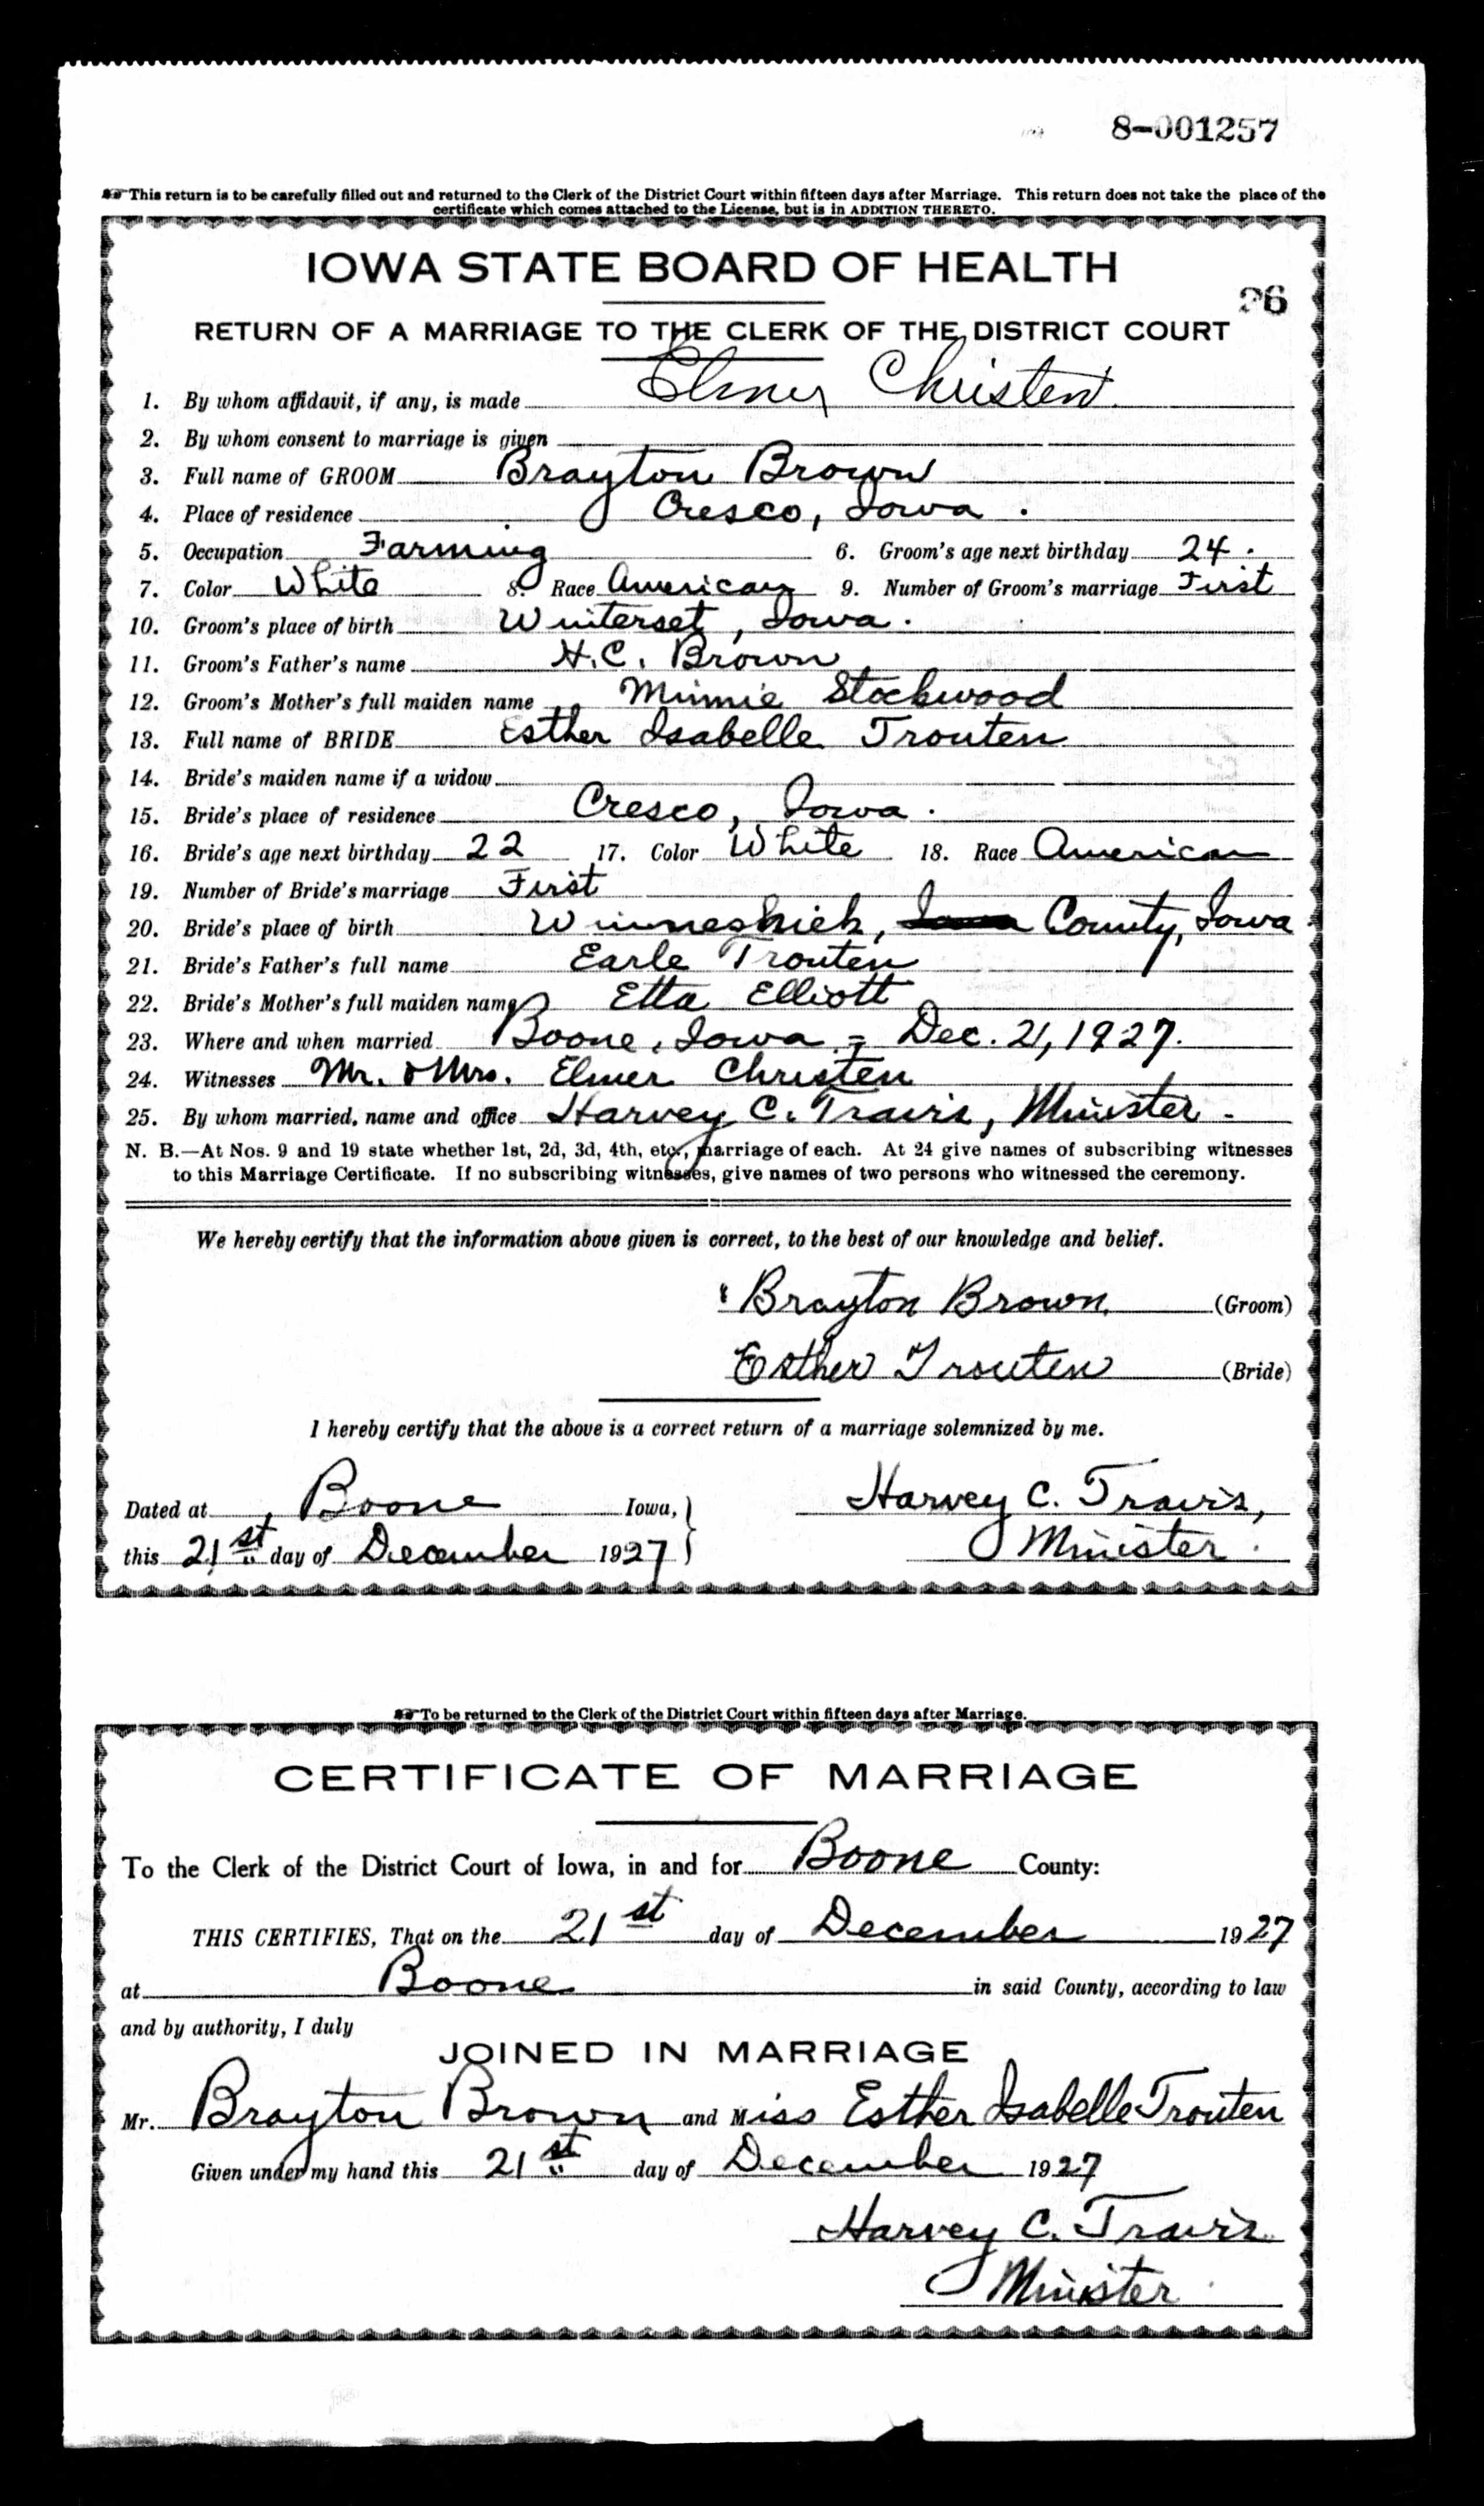 8-001257
This return is to be carefully filled out and returned to the Clerk of the District Court within fifteen days after Marriage. This return does not take the place of the
certificate which comes attached to the License, but is in ADDITION THERETO.
IOWA STATE BOARD OF HEALTH
26
RETURN OF A MARRIAGE TO THE CLERK OF THE DISTRICT COURT
1. By whom affidavit, if any, is made Elmer Christen
2. By whom consent to marriage is given
3. Full name of GROOM Brayton Brown
4. Place of residence Cresco, Iowa.
5. Occupation Farming 6. Groom's age next birthday 24.
7. Color White 8. Race American 9. Number of Groom's marriage First
10. Groom's place of birth Winterset, Iowa.
11. Groom's Father's name H.C. Brown
12. Groom's Mother's full maiden name Minnie Stockwood
13. Full name of BRIDE Esther Isabelle Trouten
14. Bride's maiden name if a widow
15. Bride's place of residence Cresco, Iowa.
16. Bride's age next birthday 22 17. Color White 18. Race American
19. Number of Bride's marriage First
20. Bride's place of birth Winneshiek, County, Iowa
21. Bride's Father's full name Earle Trouten
22. Bride's Mother's full maiden name Etta Elliott
23. Where and when married Boone, Iowa, - Dec. 21, 1927.
24. Witnesses Mr. & Mrs. Elmer Christen
25. By whom married, name and office Harvey C. Travis, Minister.
N. B.—At Nos. 9 and 19 state whether 1st, 2d, 3d, 4th, etc., marriage of each. At 24 give names of subscribing witnesses
to this Marriage Certificate. If no subscribing witnesses, give names of two persons who witnessed the ceremony.
We hereby certify that the information above given is correct, to the best of our knowledge and belief.
Brayton Brown (Groom)
Esther Trouten (Bride)
I hereby certify that the above is a correct return of a marriage solemnized by me.
Dated at Boone Iowa, Harvey C. Travis,
this 21st day of December 1927 Minister.
To be returned to the Clerk of the District Court within fifteen days after Marriage.
CERTIFICATE OF MARRIAGE
To the Clerk of the District Court of Iowa, in and for Boone County:
THIS CERTIFIES, That on the 21st day of December 1927
at Boone in said County, according to law
and by authority, I duly
JOINED IN MARRIAGE
Mr. Brayton Brown and Miss Esther Isabelle Trouten
Given under my hand this 21st day of December 1927
Harvey C. Travis
Minister